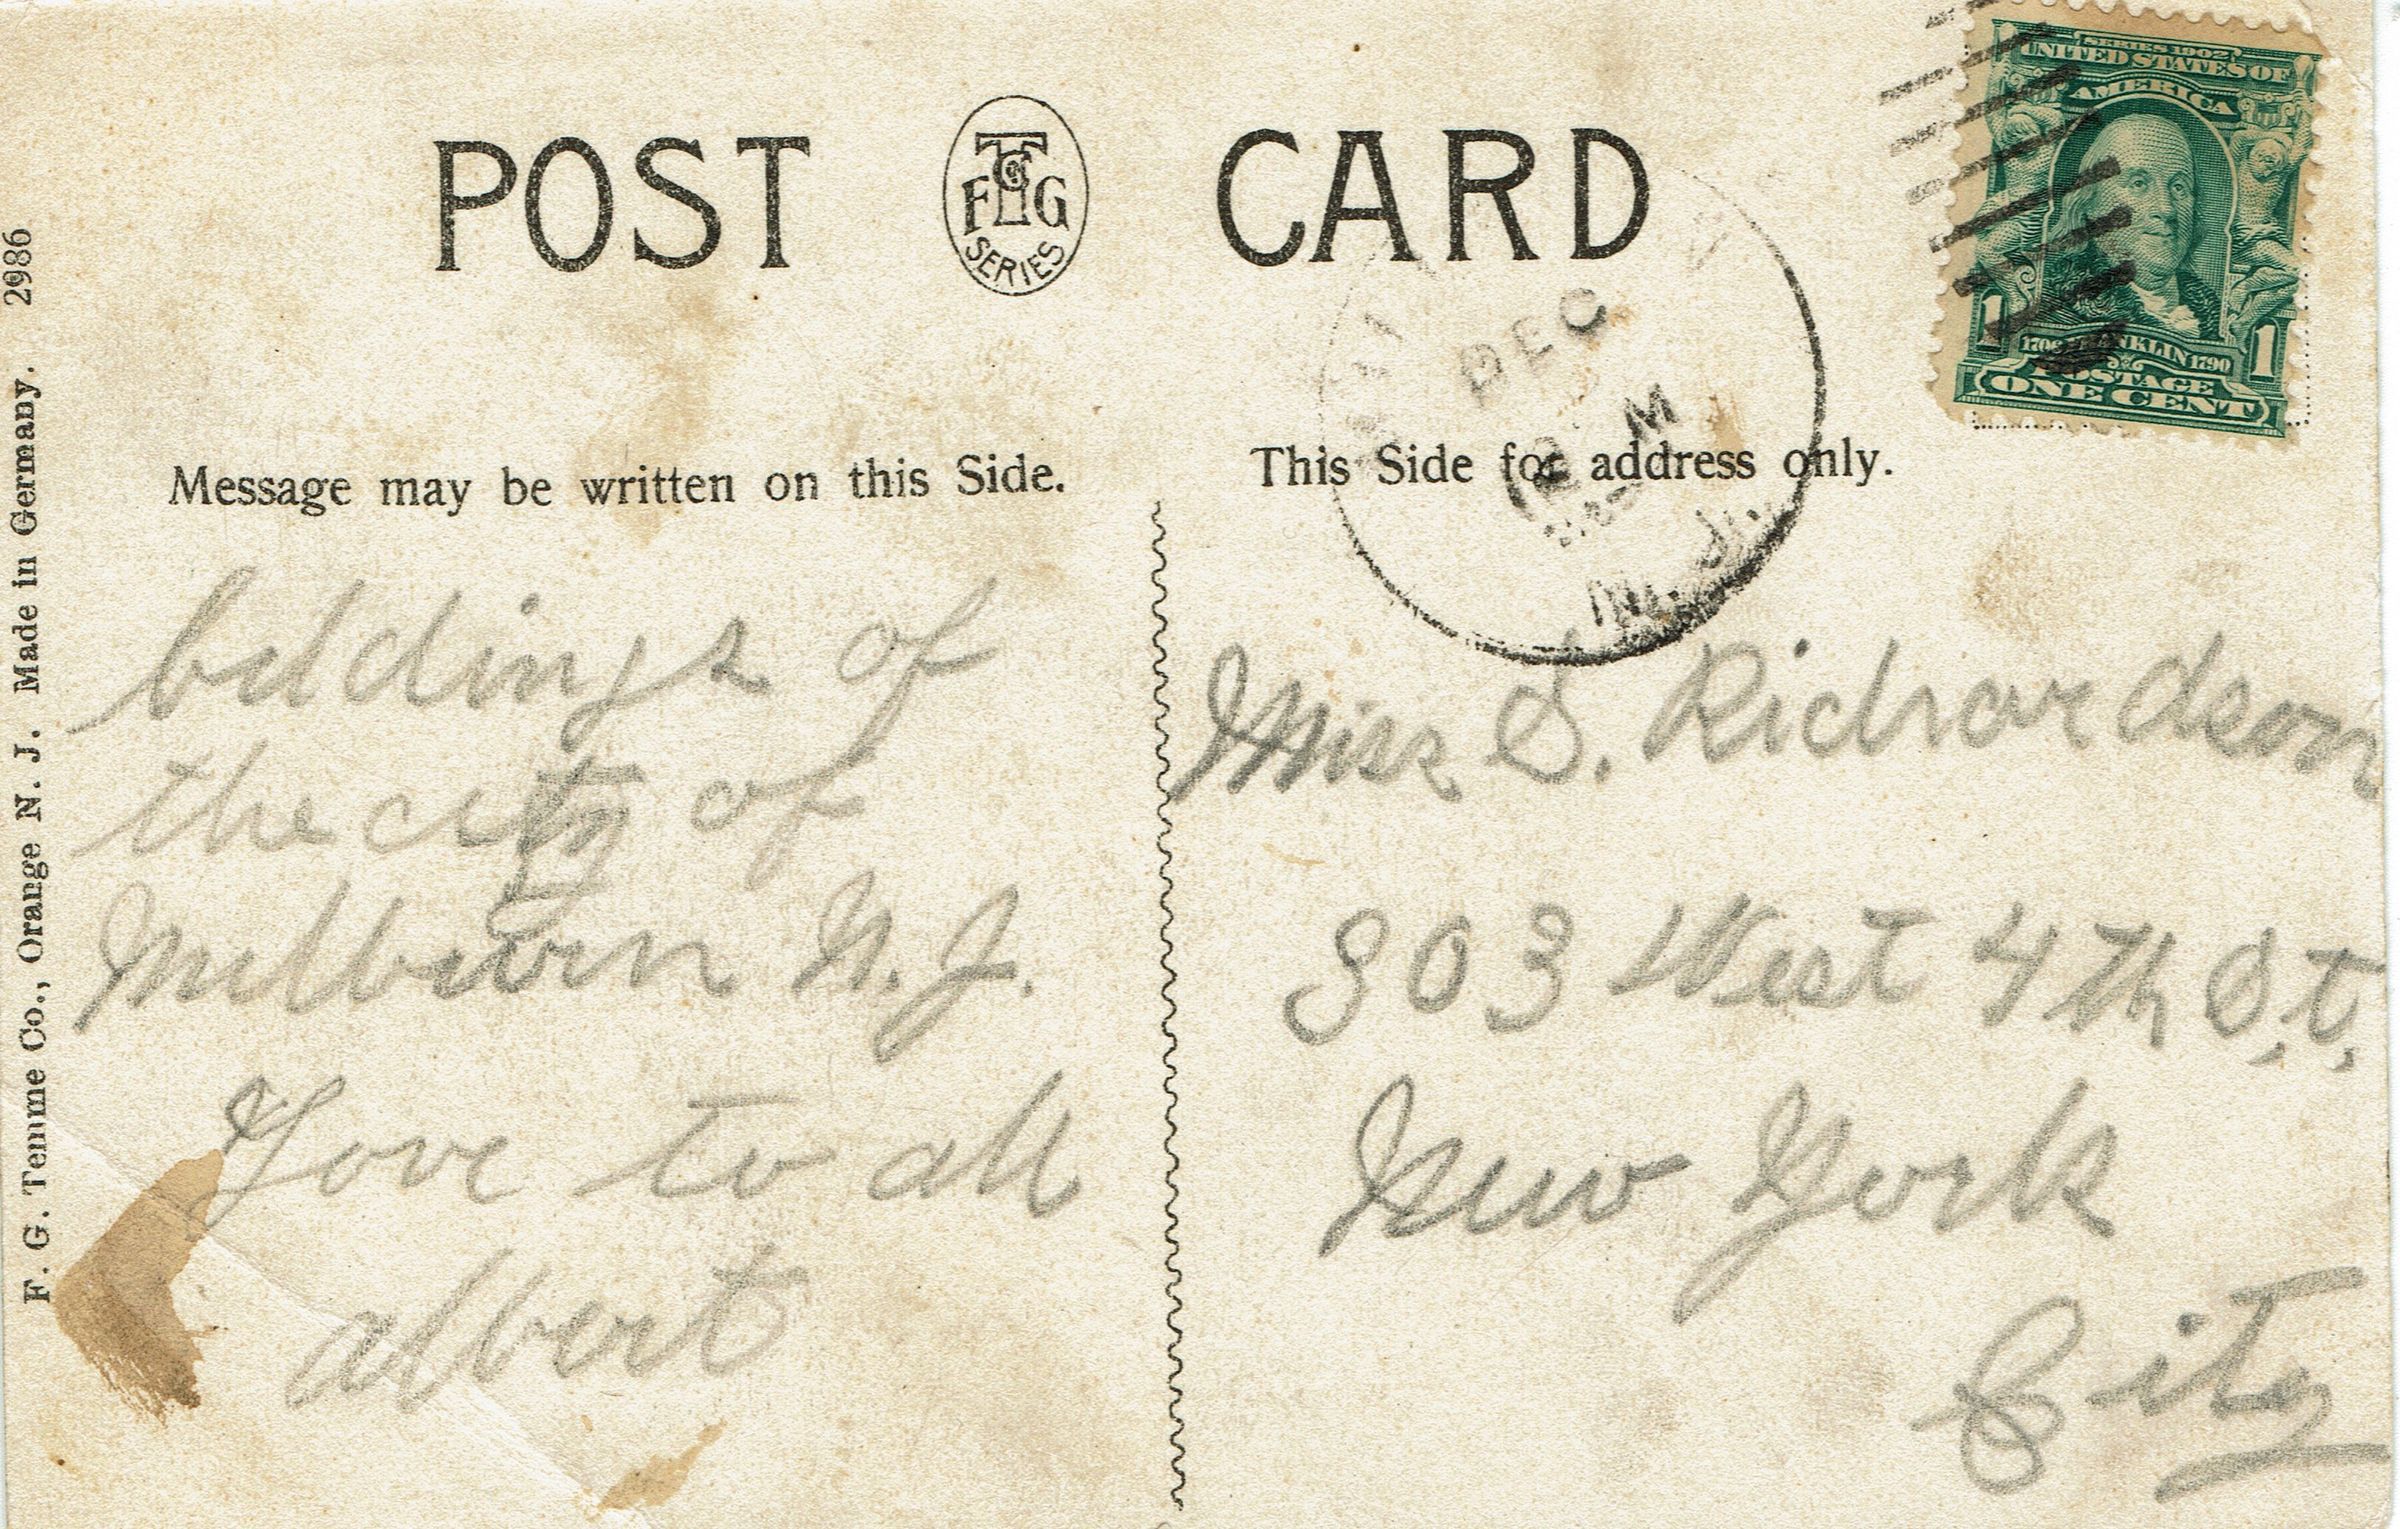 POST CARD
F T G Co
SERIES
SERIES 1902
UNITED STATES OF
AMERICA
1706 FRANKLIN 1790
1 POSTAGE 1
ONE CENT
DEC
M
N. J.
Message may be written on this Side.
This Side for address only.
F. G. Temme Co., Orange N. J. Made in Germany. 2986
beldings of
the city of
Milburn N. J.
Love to all
albert
Miss S. Richardson
303 West 4th St.
New York
City